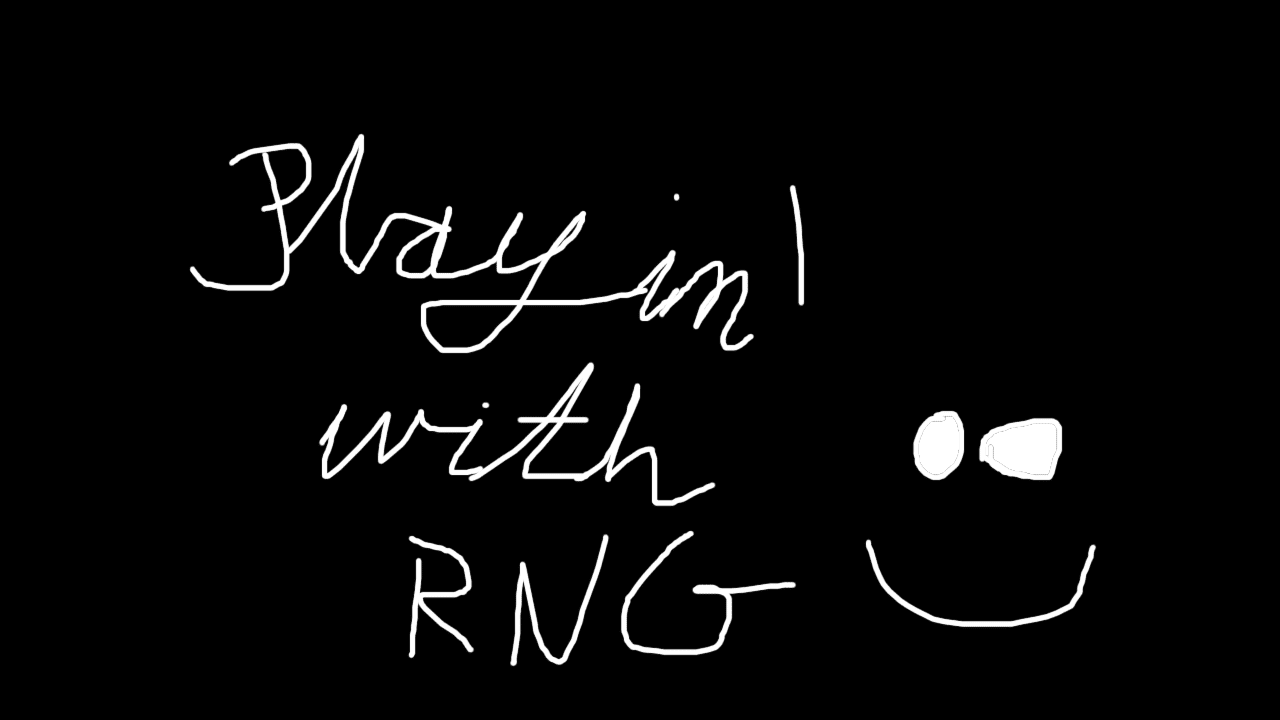 Playin'
with
RNG